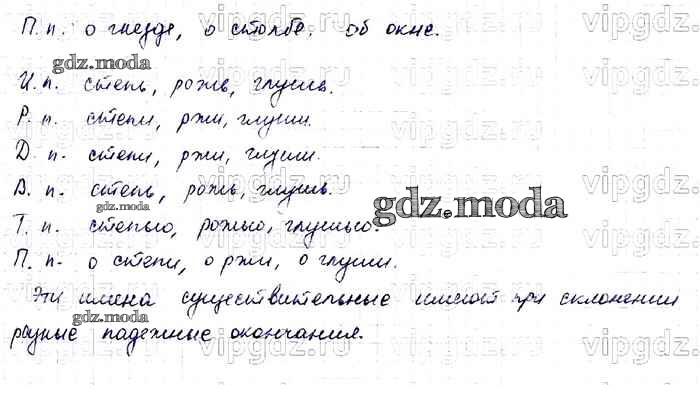 П. п. о гнезде, о столбе, об окне.
И. п. степь, рожь, глушь.
Р. п. степи, ржи, глуши.
Д. п. степи, ржи, глуши.
В. п. степь, рожь, глушь.
Т. п. степью, рожью, глушью.
П. п. о степи, о ржи, о глуши.
Эти имена существительные имеют при склонении
разные падежные окончания.
gdz.moda
gdz.moda
gdz.moda
gdz.moda
vipgdz.ru